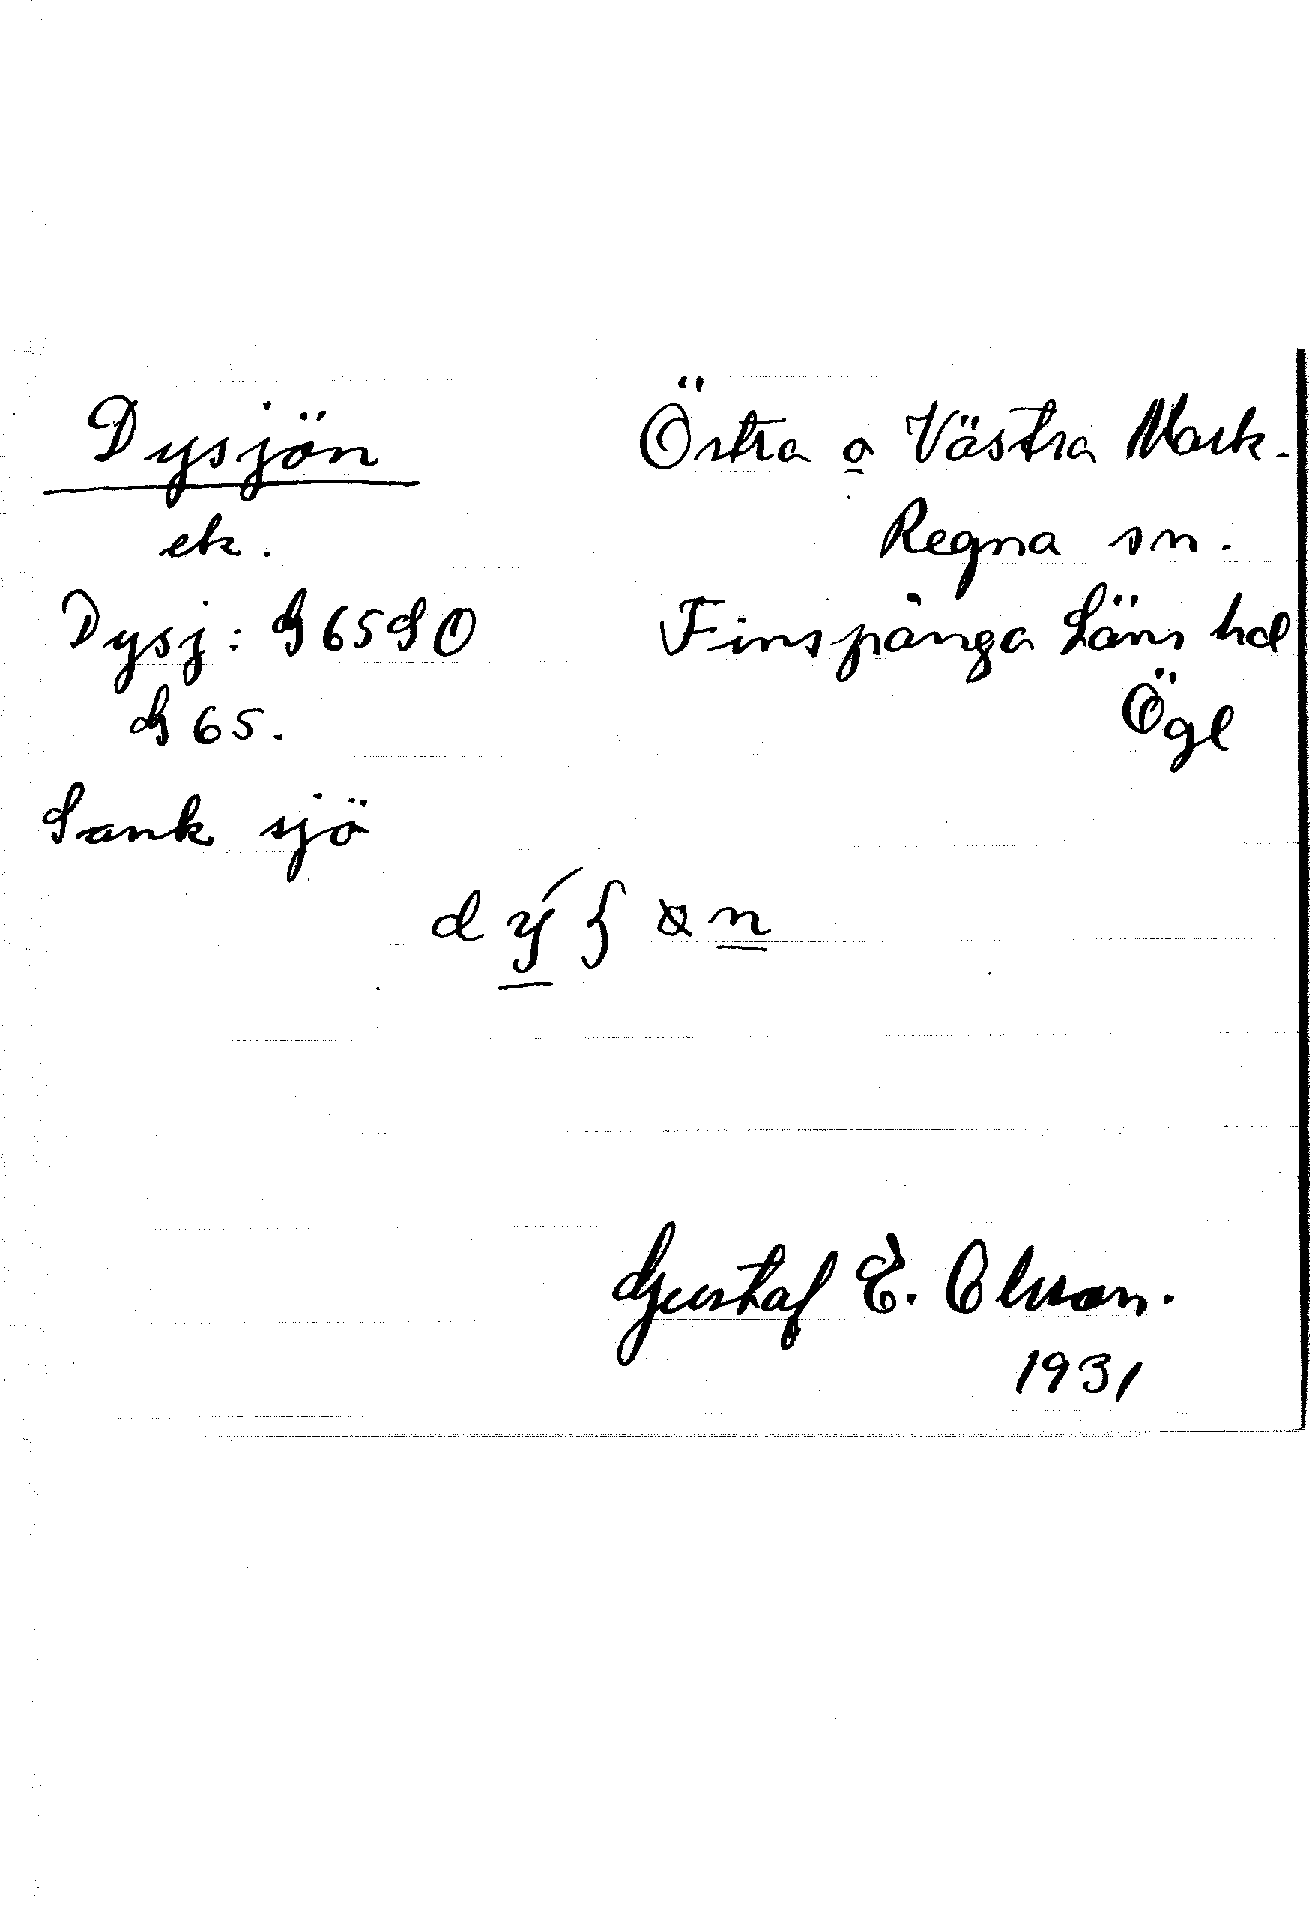 Dysjön
ek.
Dysj: G 65 SO
G 65.
Sank sjö
Östra o Västra Mark.
Regna sn.
Finspånga Läns hd
Ögl
Gustaf E. Olsson.
1931